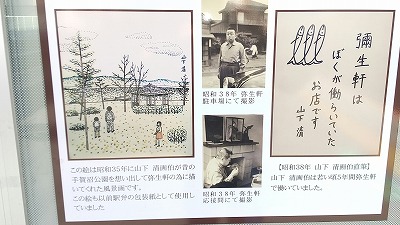 この絵は昭和35年に山下 清画伯が昔の
手賀沼公園を想い出して弥生軒の為に描
いてくれた風景画です。
この絵も以前駅弁の包装紙として使用し
ていました
昭和38年 弥生軒
駐車場にて撮影
昭和38年 弥生軒
応接間にて撮影
彌生軒は
ぼくが働らいていた
お店です
山下清
【昭和38年 山下 清画伯直筆】
山下 清画伯は若い頃5年間弥生軒
で働いていました。